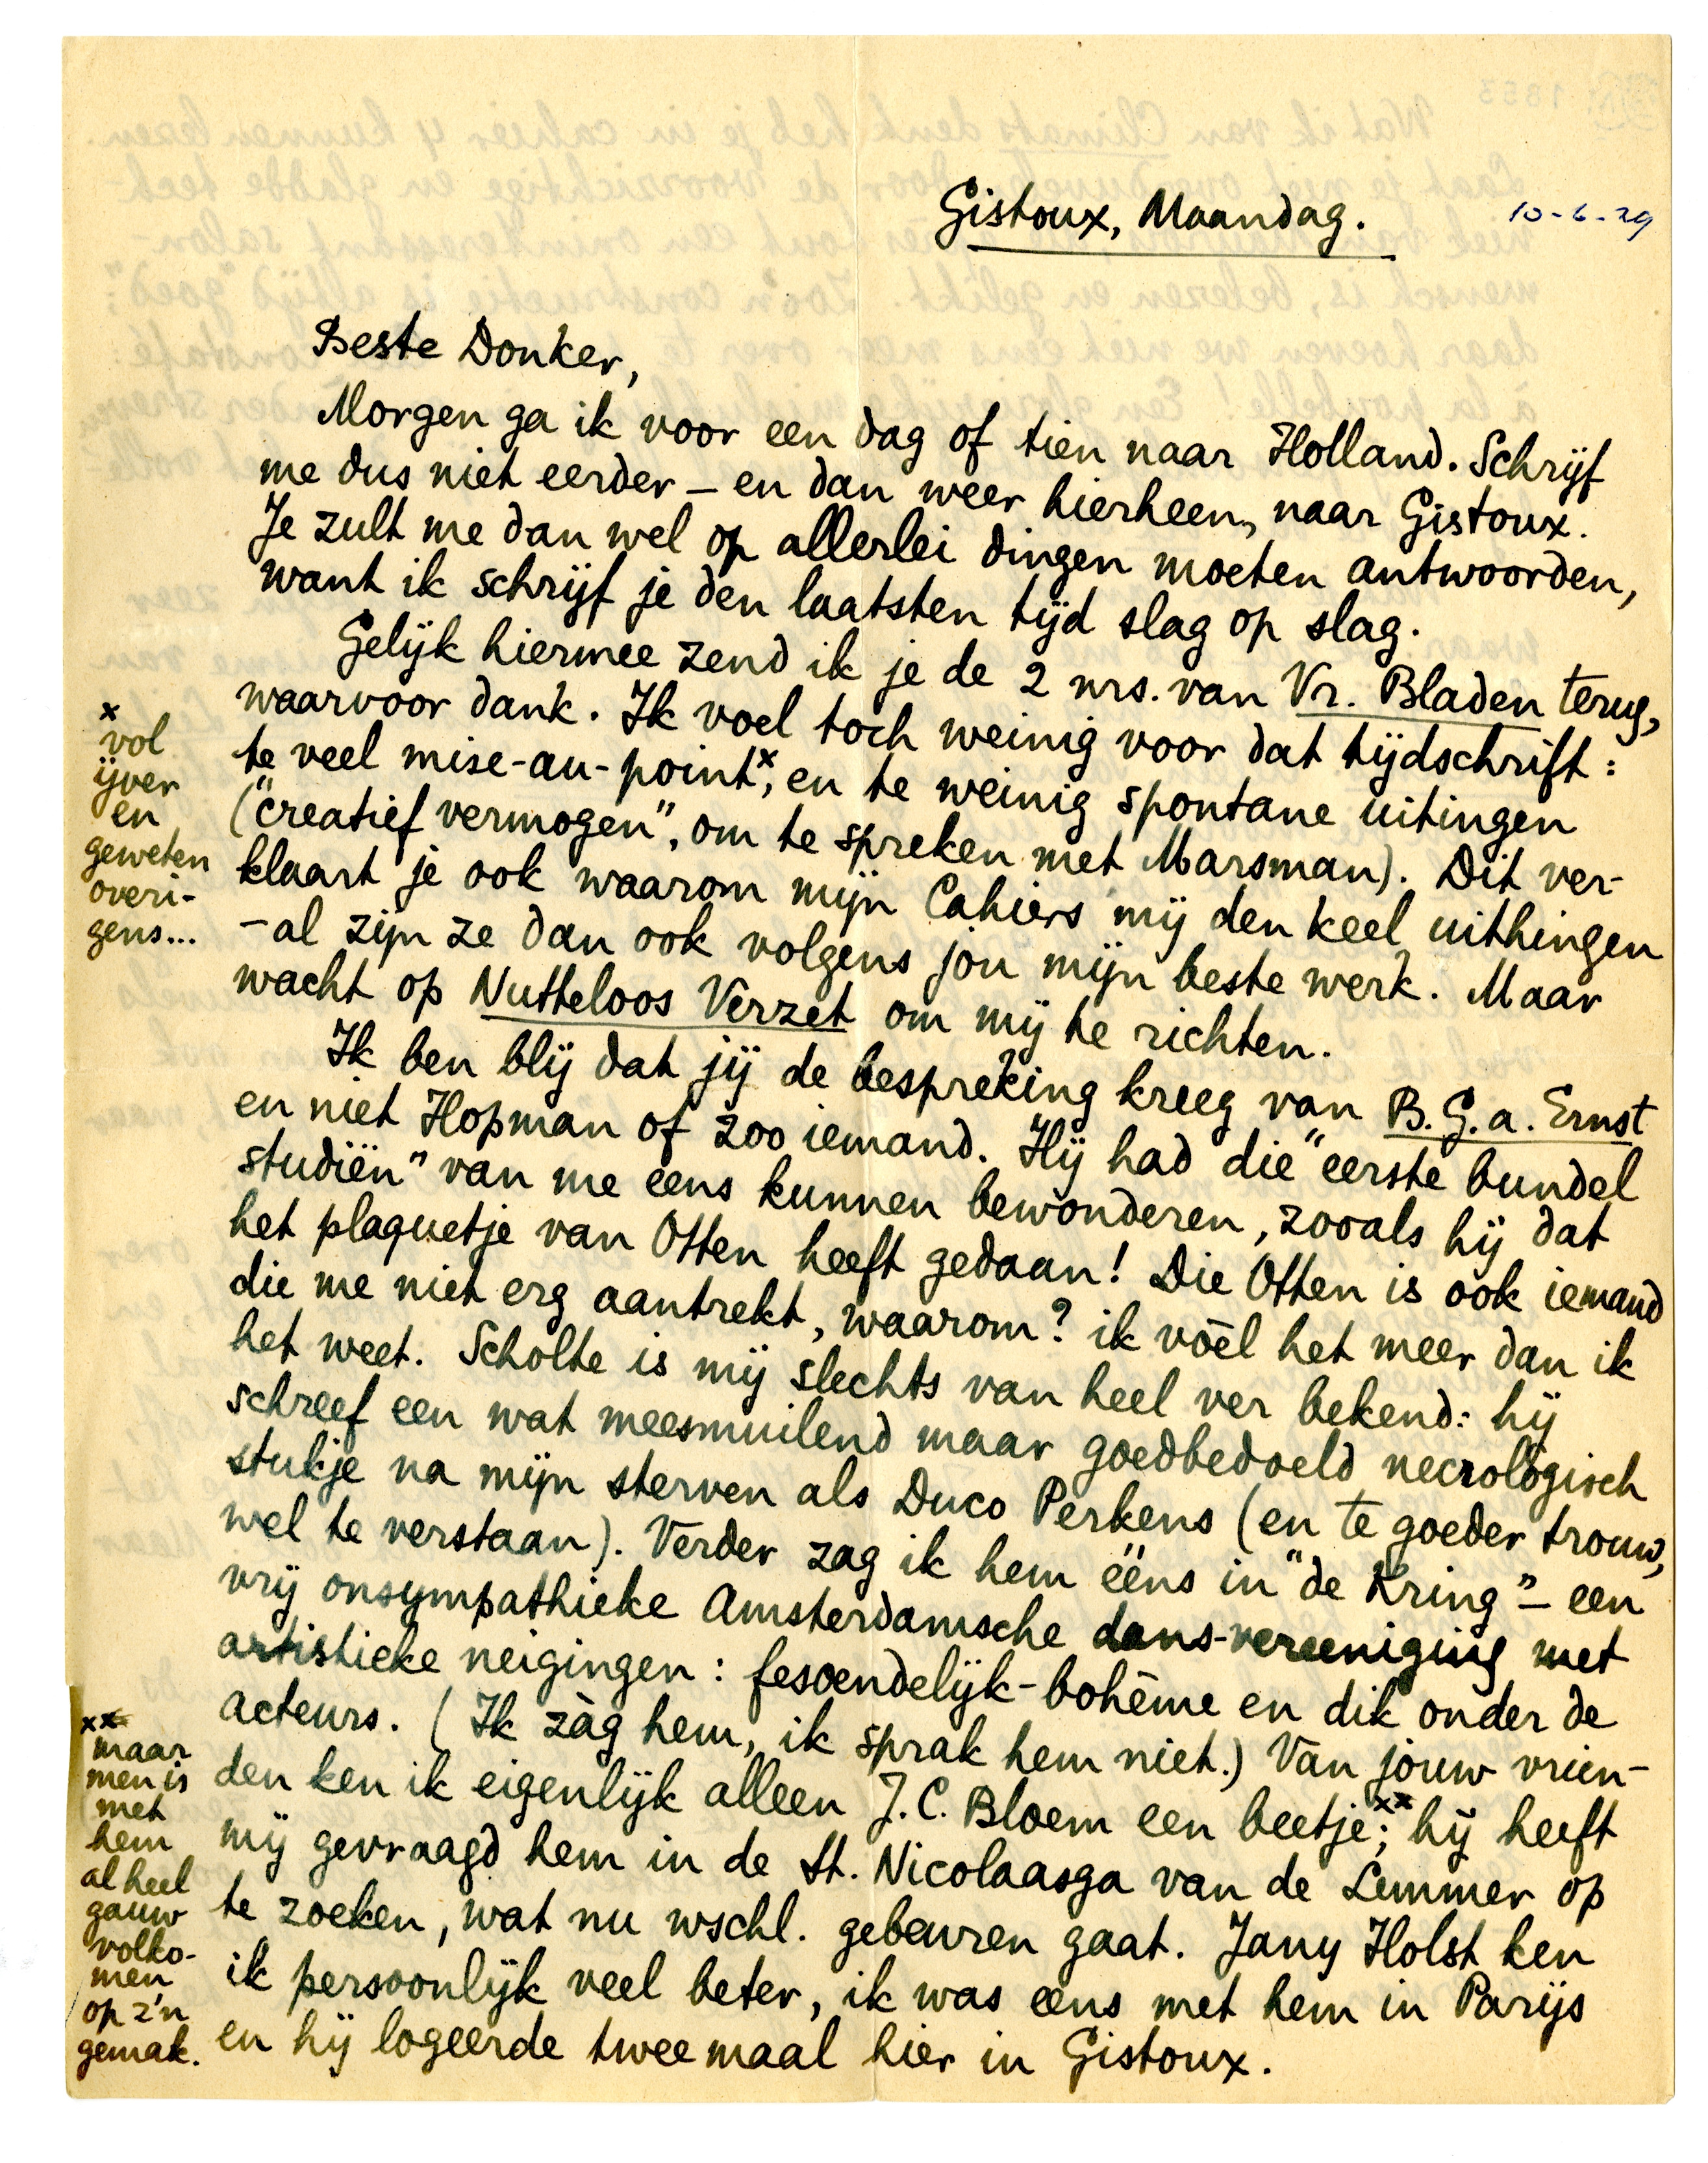 Gistoux, Maandag.
10-6-29
Beste Donker,
Morgen ga ik voor een dag of tien naar Holland. Schrijf
me dus niet eerder – en dan weer hierheen, naar Gistoux.
Je zult me dan wel op allerlei dingen moeten antwoorden,
want ik schrijf je den laatsten tijd slag op slag.
Gelijk hiermee zend ik je de 2 nrs. van Vr. Bladen terug,
waarvoor dank. Ik voel toch weinig voor dat tijdschrift:
te veel mise-au-point x, en te weinig spontane uitingen
("creatief vermogen", om te spreken met Marsman). Dit ver-
klaart je ook waarom mijn Cahiers mij den keel uithingen
– al zijn ze dan ook volgens jou mijn beste werk. Maar
wacht op Nutteloos Verzet om mij te richten.
x
vol
ijver
en
geweten
overi-
gens...
Ik ben blij dat jij de bespreking kreeg van B.G.a. Ernst
en niet Hopman of zoo iemand. Hij had die "eerste bundel
studiën" van me eens kunnen bewonderen, zooals hij dat
het plaquetje van Otten heeft gedaan! Die Otten is ook iemand
die me niet erg aantrekt, waarom? ik vóél het meer dan ik
het weet. Scholte is mij slechts van heel ver bekend: hij
schreef een wat meesmuilend maar goedbedoeld necrologisch
stukje na mijn sterven als Duco Perkens (en te goeder trouw,
wel te verstaan). Verder zag ik hem ééns in "de Kring" – een
vrij onsympathieke Amsterdamsche dans-vereeniging met
artistieke neigingen: fesoendelijk-bohème en dik onder de
acteurs. (Ik zàg hem, ik sprak hem niet.) Van jouw vrien-
den ken ik eigenlijk alleen J.C. Bloem een beetje; xx hij heeft
mij gevraagd hem in de St. Nicolaasga van de Lemmer op
te zoeken, wat nu wschl. gebeuren gaat. Jany Holst ken
ik persoonlijk veel beter, ik was eens met hem in Parijs
en hij logeerde twee maal hier in Gistoux.
xx
maar
men is
met
hem
al heel
gauw
volko-
men
op z'n
gemak.